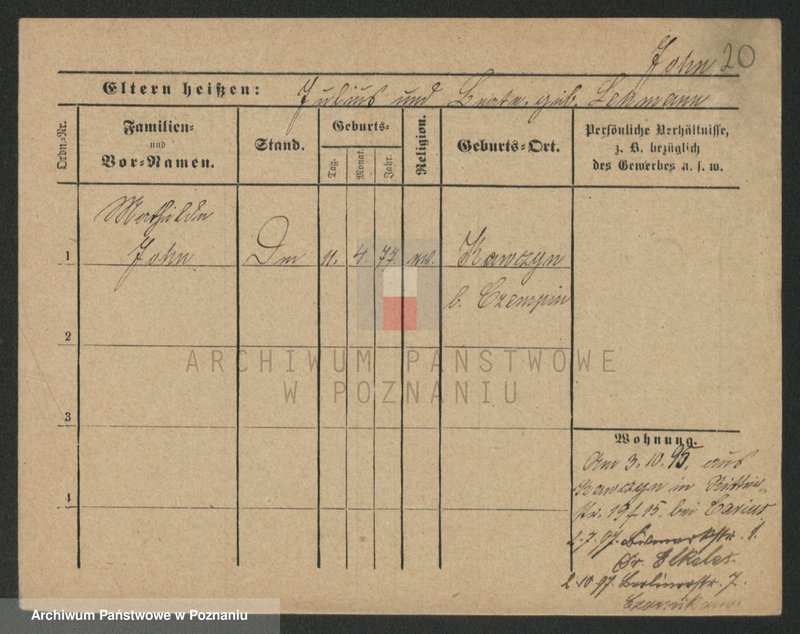 John 20
Eltern heißen: Julius und Beate geb. Lehmann
Ordn.-Nr.
Familien-
und
Vor-Namen.
Stand.
Geburts-
Tag.
Monat.
Jahr.
Religion.
Geburts-Ort.
Persönliche Verhältnisse,
z. B. bezüglich
des Gewerbes u. s. w.
Mathilde
1 John 11. 4. 77. ev. Kawczyn
b. Czempin
2
ARCHIWUM PAŃSTWOWE
W POZNANIU
3
Wohnung.
Am 3.10.95. aus
Kawczyn in Ritter-
str. bei
2.7.97. Bismarckstr. 1.
Dr. Elkeles.
4
2.10.97. Berlinerstr. 7.
Archiwum Państwowe w Poznaniu